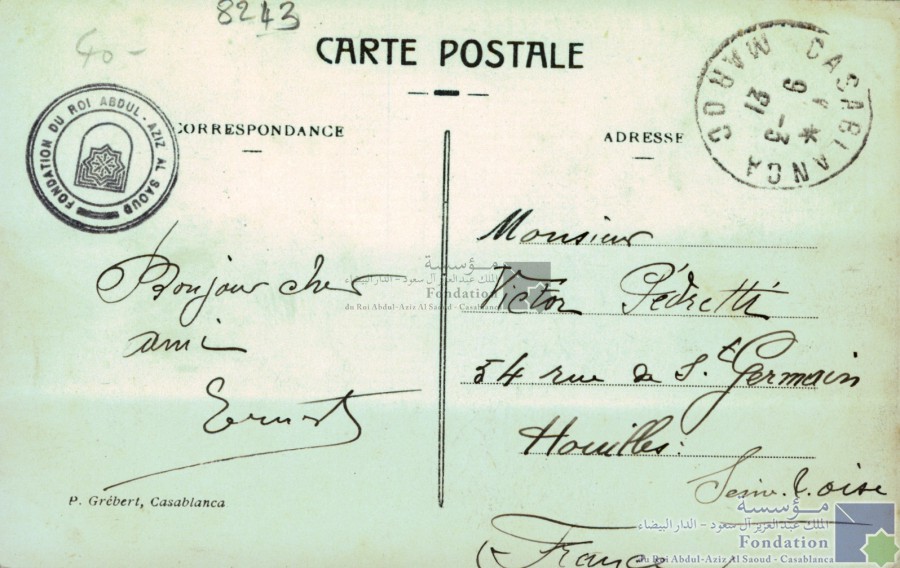 8243
40-
CARTE POSTALE
CORRESPONDANCE
ADRESSE
FONDATION DU ROI ABDUL-AZIZ AL SAOUD
CASABLANCA MAROC
9 *
21 -3
Bonjour cher
ami
Ernest
Monsieur
Victor Pédretti
54 rue de St Germain
Houilles:
Seine & Oise
(France)
P. Grébert, Casablanca
مؤسسة
الملك عبد العزيز آل سعود - الدار البيضاء
Fondation
du Roi Abdul-Aziz Al Saoud - Casablanca
مؤسسة
الملك عبد العزيز آل سعود - الدار البيضاء
Fondation
du Roi Abdul-Aziz Al Saoud - Casablanca